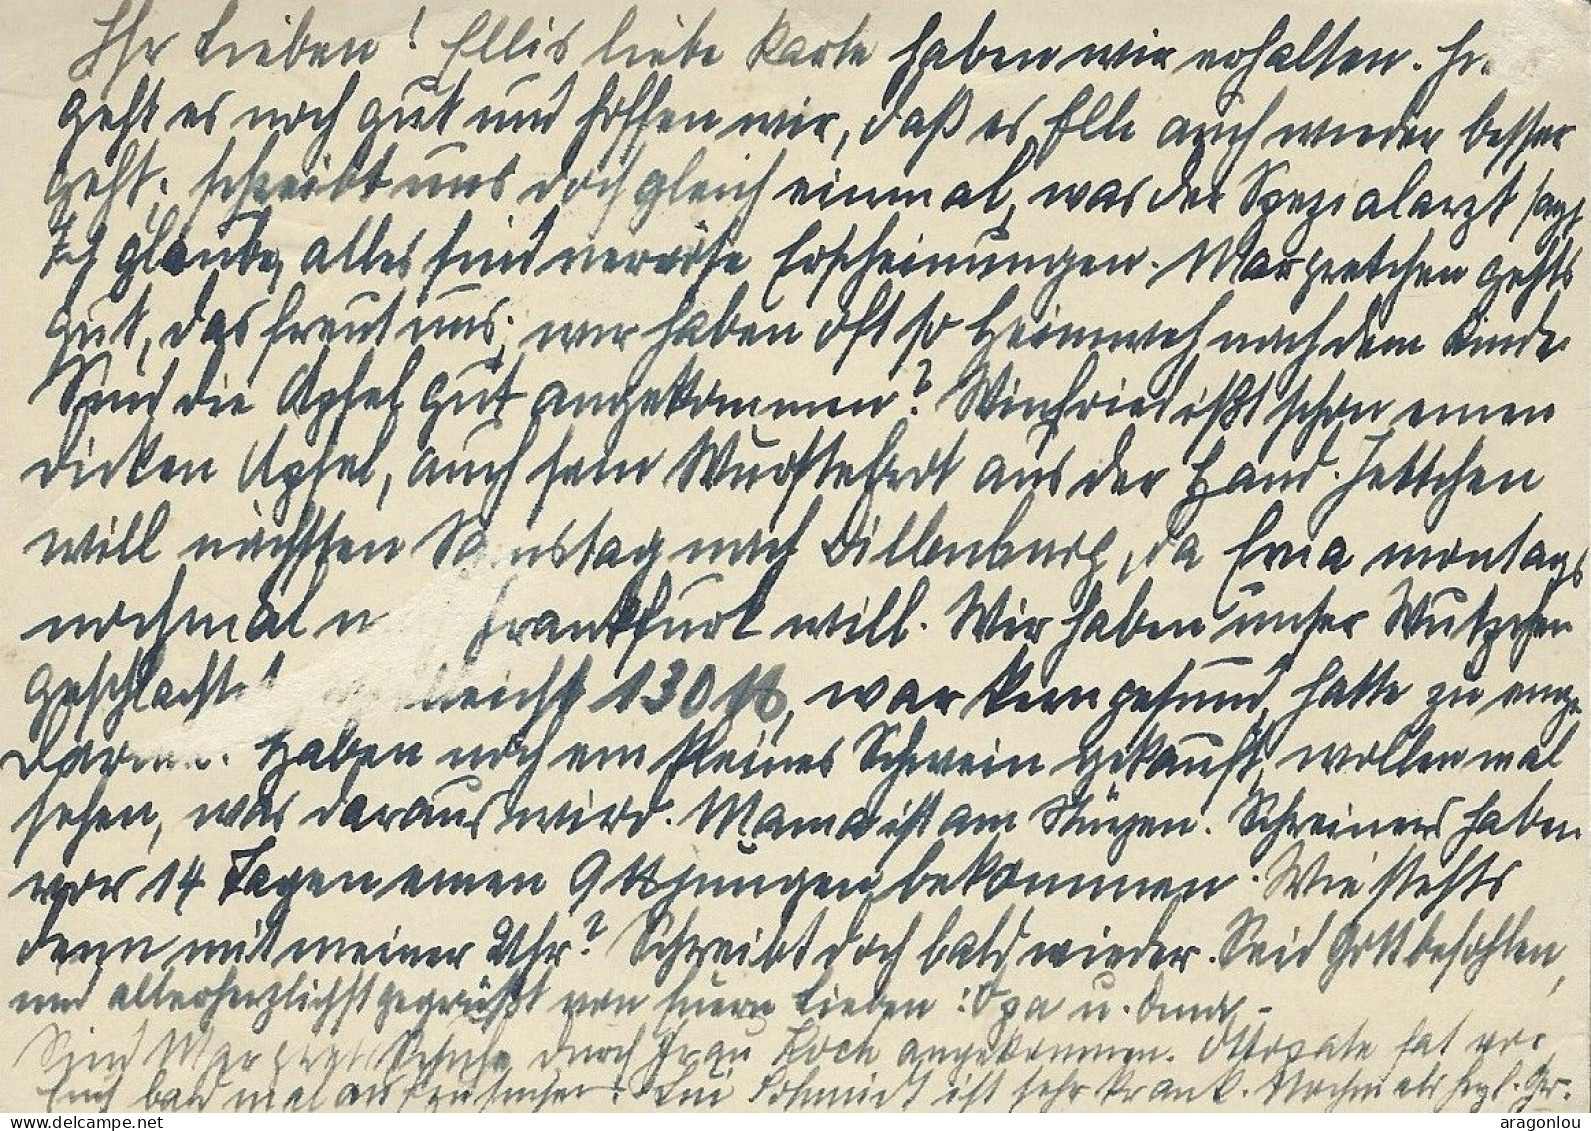 Ihr Lieben! Ellis liebe Karte haben wir erhalten.
geht es noch gut und hoffen wir, daß es Elli auch wieder besser
geht; schreibt uns doch gleich einmal, was der Spezialarzt sagt
Ich glaube, alles sind nervöse Erscheinungen. Margretchen gehts
gut, das freut uns; wir haben oft so Heimweh nach dem Kinde
Sind die Äpfel gut angekommen? Winfried ißt schon einen
dicken Apfel, auch sein Wurstebrot aus der Hand. Jettchen
will nächsten Samstag nach Dillenburg, da Erna montags
nochmal n Frankfurt will. Wir haben unser Wutzchen
geschlachtet 130 ℔, war kerngesund, hatte zu enge
Därme. Haben noch ein kleines Schwein gekauft, wollen mal
sehen, was daraus wird. Mama ist am Stüzen. Schreiners haben
vor 14 Tagen einen 9 ℔ jungen bekommen. Wie stehts
denn mit meiner Uhr? Schreibt doch bald wieder. Seid Gott befohlen,
und allerherzlichst gegrüßt von Euern Lieben: Opa u. Oma.-
Sind Margrets Schuhe durch Frau Koch angekommen. hat vor,
Euch bald mal Schmidt ist sehr krank. Nochmals hzl. Gr.